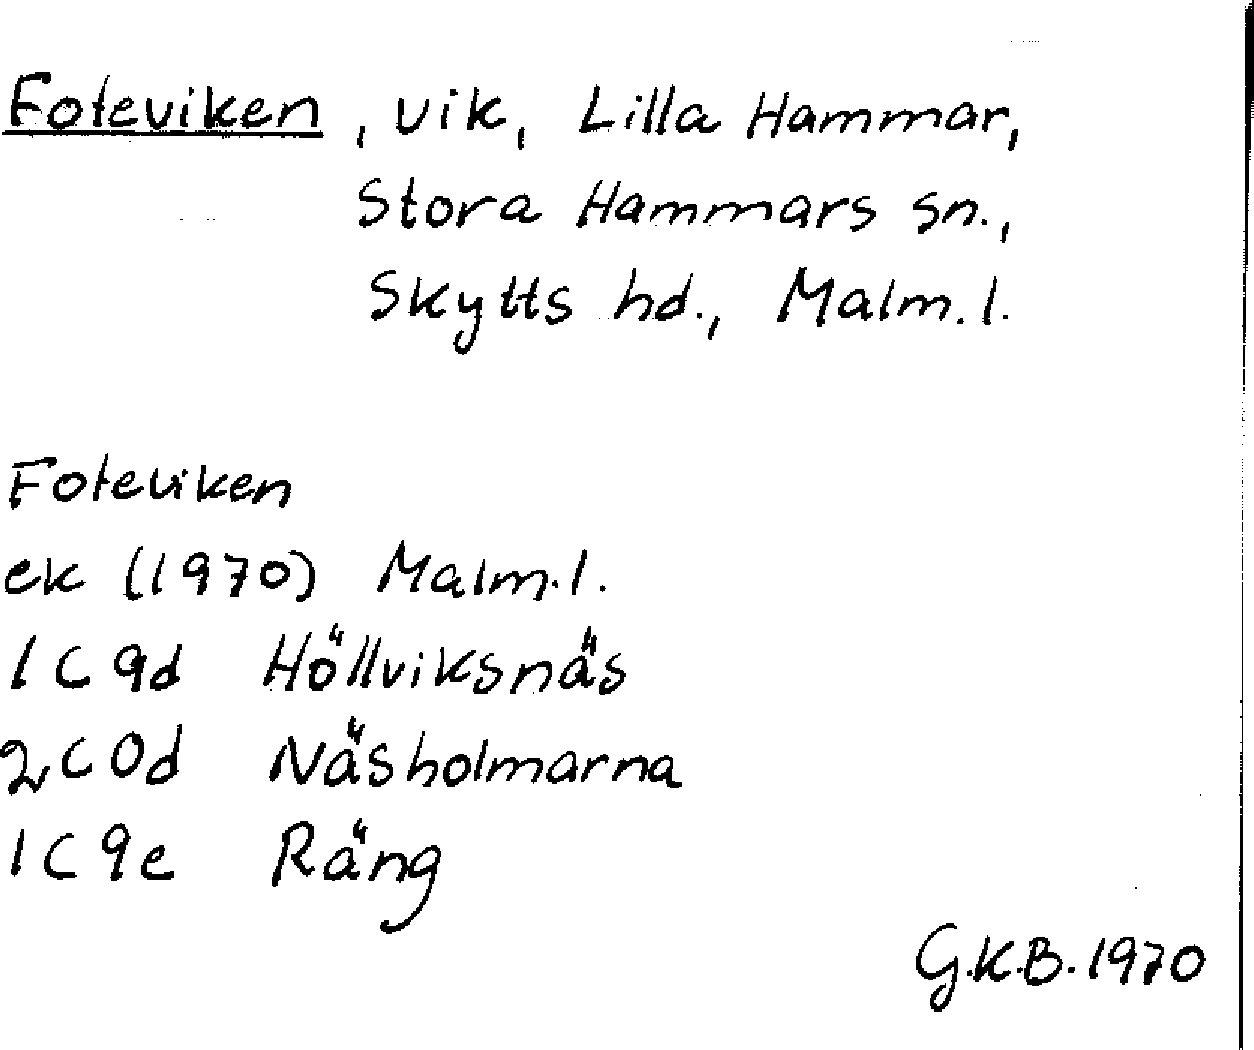 Foteviken, vik, Lilla Hammar,
Stora Hammars sn.,
Skytts hd., Malm. l.
Foteviken
ek (1970) Malm. l.
1C 9d Höllviksnäs
2C 0d Näsholmarna
1C 9e Räng
G.K.B. 1970